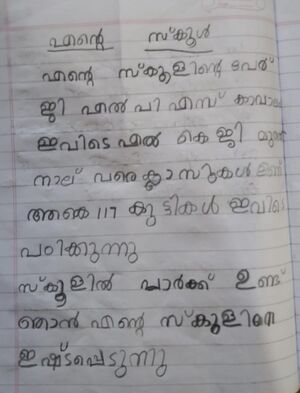 എന്റെ സ്കൂൾ
എന്റെ സ്കൂളിന്റെ പേര്
ജി എൽ പി എസ്
ഇവിടെ എൽ കെ ജി മുതൽ
നാല് വരെ ക്ലാസുകൾ ഉണ്ട്
ആകെ 117 കുട്ടികൾ ഇവിടെ
പഠിക്കുന്നു
സ്കൂളിൽ പാർക്ക് ഉണ്ട്
ഞാൻ എന്റെ സ്കൂളിനെ
ഇഷ്ടപ്പെടുന്നു